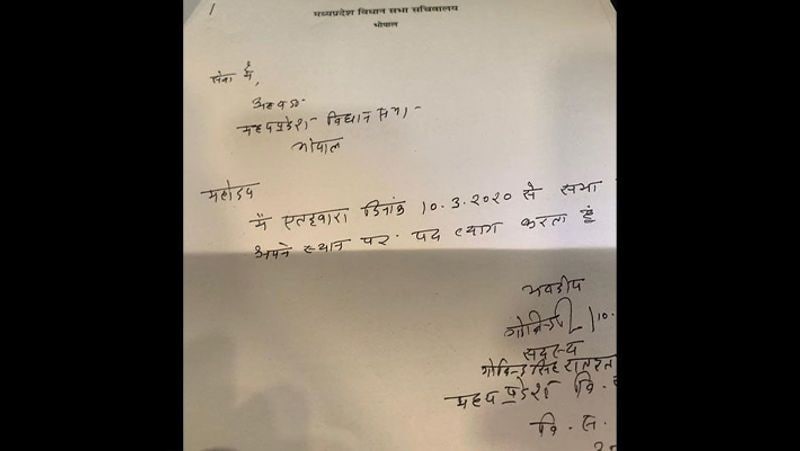 मध्यप्रदेश विधान सभा सचिवालय
भोपाल
सेवा में,
अध्यक्ष
मध्यप्रदेश विधान सभा
भोपाल
महोदय
मैं एतद्द्वारा दिनांक 10.3.2020 से सभा
अपने स्थान पर पद त्याग करता हूं
भवदीय
10.
सदस्य
गोविन्द सिंह
मध्य प्रदेश वि.
वि. स.